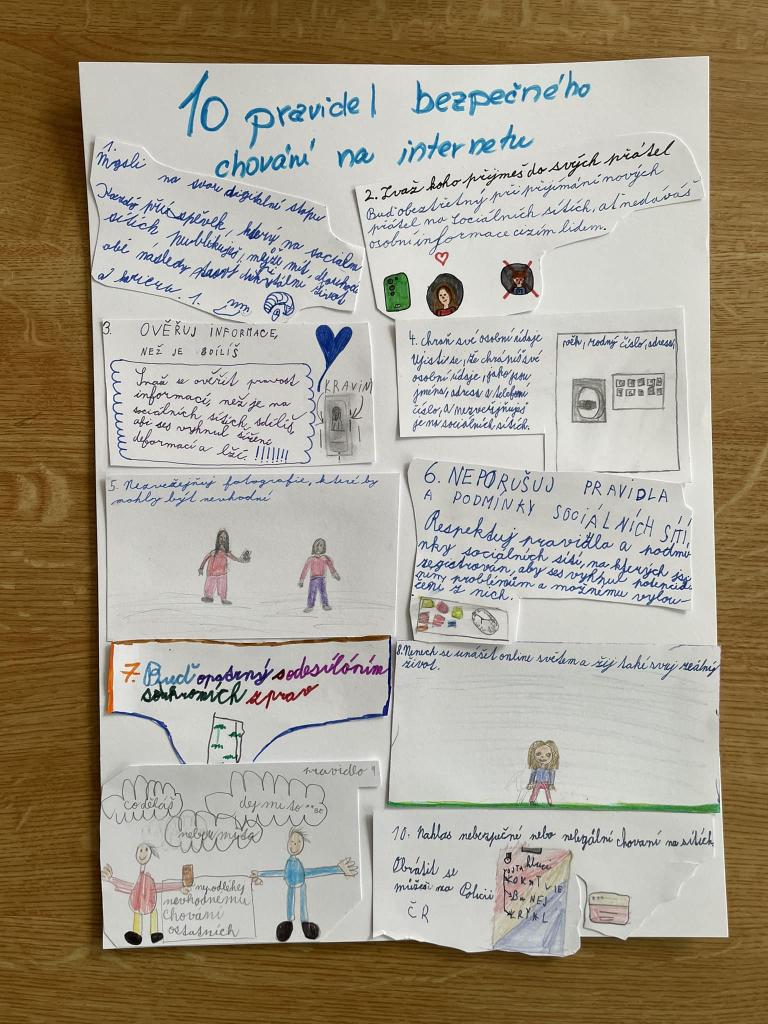 10 pravidel bezpečného
chování na internetu
1.
Mysli na svou digitální stopu
Každý příspěvek, který na sociální
sítích publikuješ, může mít dlouhodobé následky
a kariéru. 1.
2. Zvaž koho přijmeš do svých přátel
Buď obezřetný při přijímání nových
přátel na sociálních sítích, ať nedáváš
osobní informace cizím lidem.
3. OVĚŘUJ INFORMACE,
NEŽ JE SDÍLÍŠ
Snaž se ověřit pravost
informací, než je na
sociálních sítích sdílíš,
abi ses vyhnul šíření
deformací a lží. !!!!!!!
KRAVIN
4. chraň své osobní údaje
Ujisti se, že chráníš své
osobní údaje, jako jsou
jména, adresa a telefoní
číslo, a nezveřejňuješ
je na sociálních sítích.
rodný číslo, adresa,
5. Nezveřejňuj fotografie, které by
mohly být nevhodné
6. NEPORUŠUJ PRAVIDLA
A PODMÍNKY SOCIÁLNÍCH SÍTÍ
Respektuj pravidla a podmí-
nky sociálních sítí, na kterých jsi
registrován, aby ses vyhnul
problémům a možnému vylou-
čení z nich.
7. Buď opatrný s odesíláním
soukromích zpráv
8. Nenech se unášet online světem a žij také svůj reálný
život.
pravidlo 9
co děláš
dej mi to
ny odléhej
nevhodnému
chování
ostatních
10. Nahlas nebezpečné nebo nelegální chování na sítích.
Obrátit se
můžeš na Policii
ČR